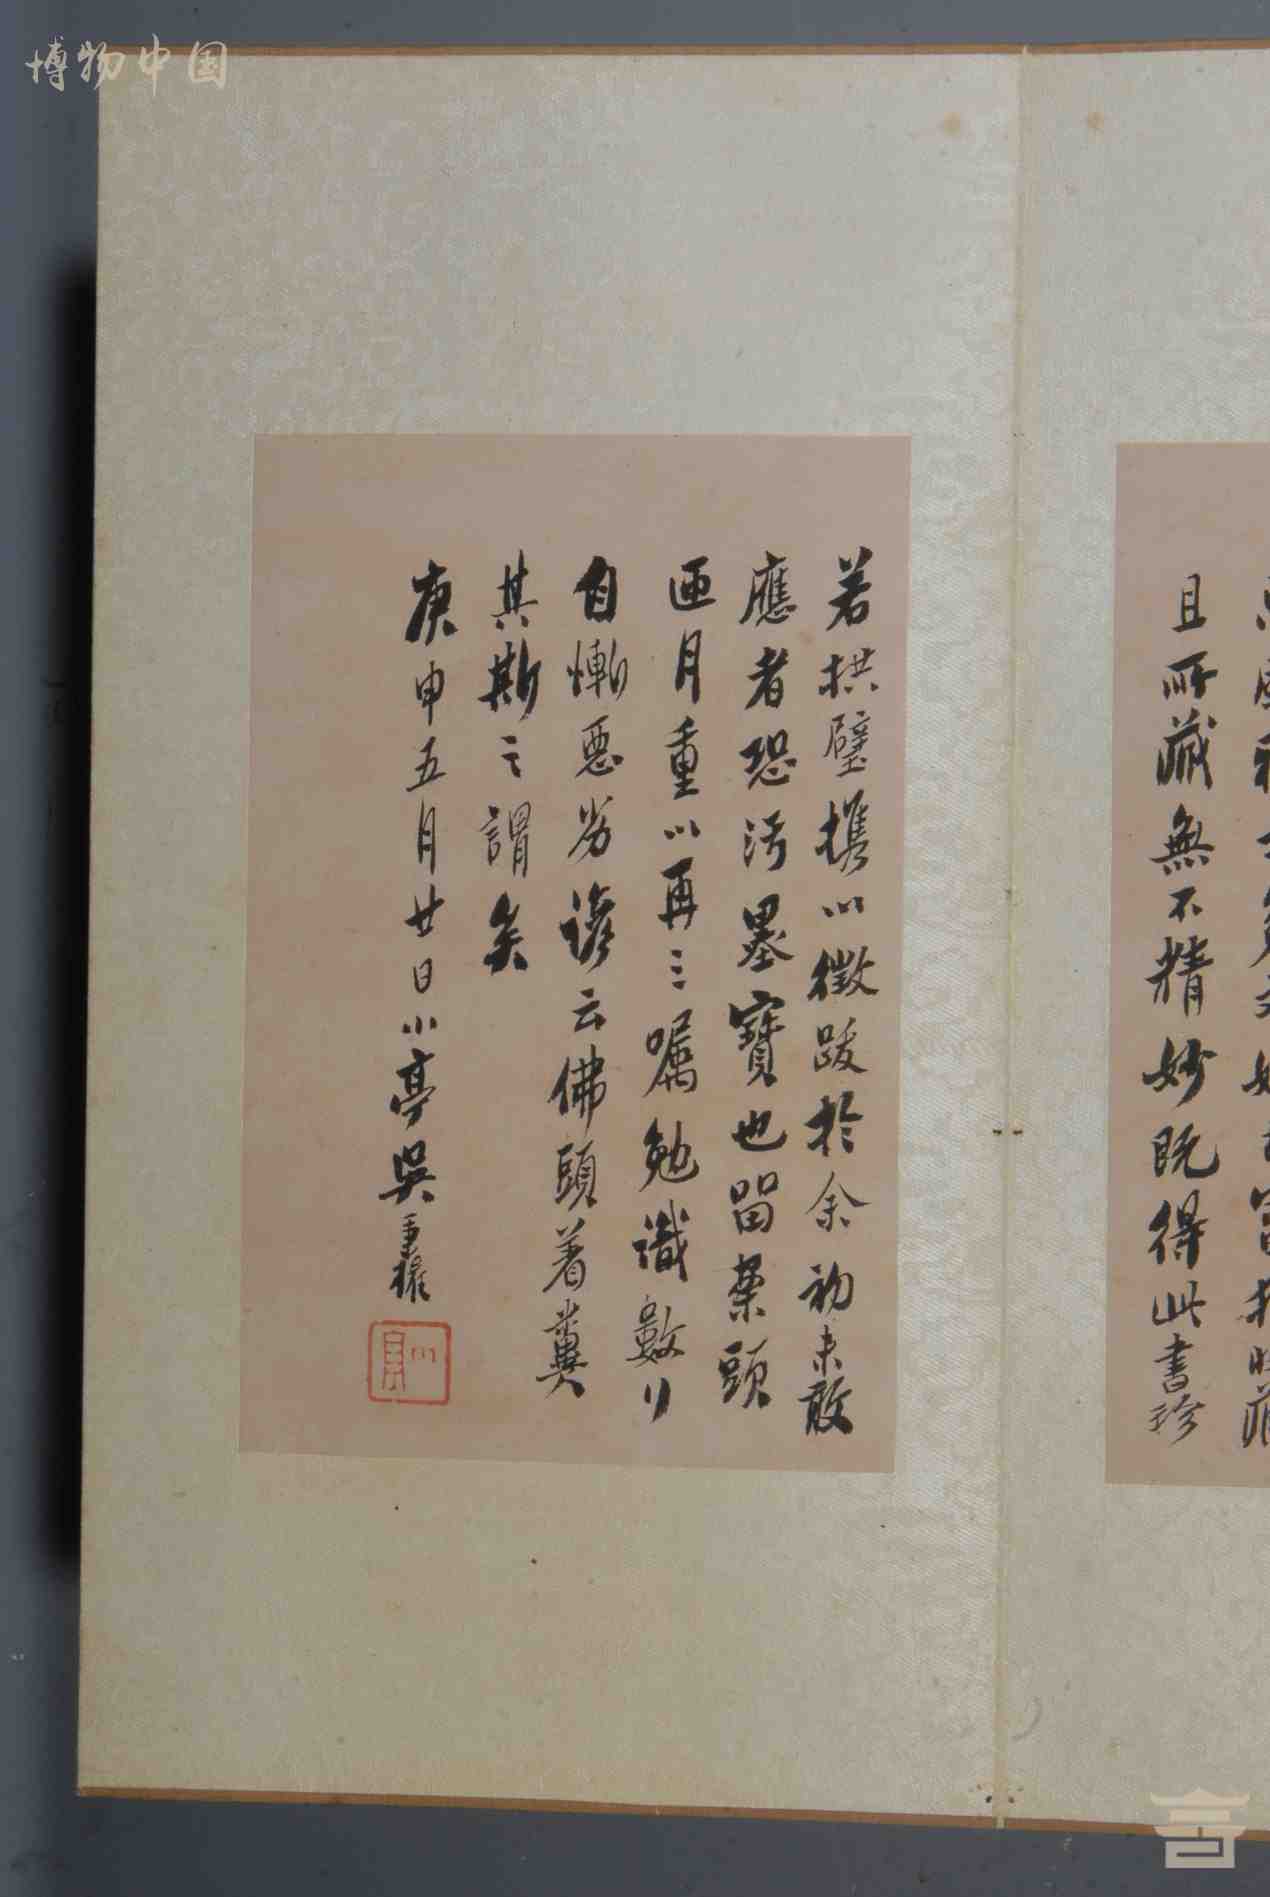 博物中国
且所藏無不精妙既得此書珍
若拱璧携以徵跋於余初未敢
應者恐污墨寶也留案頭
匝月重以再三嘱勉識數行
自慚惡劣諺云佛頭着糞
其斯之謂矣
庚申五月廿日小亭吳秉權